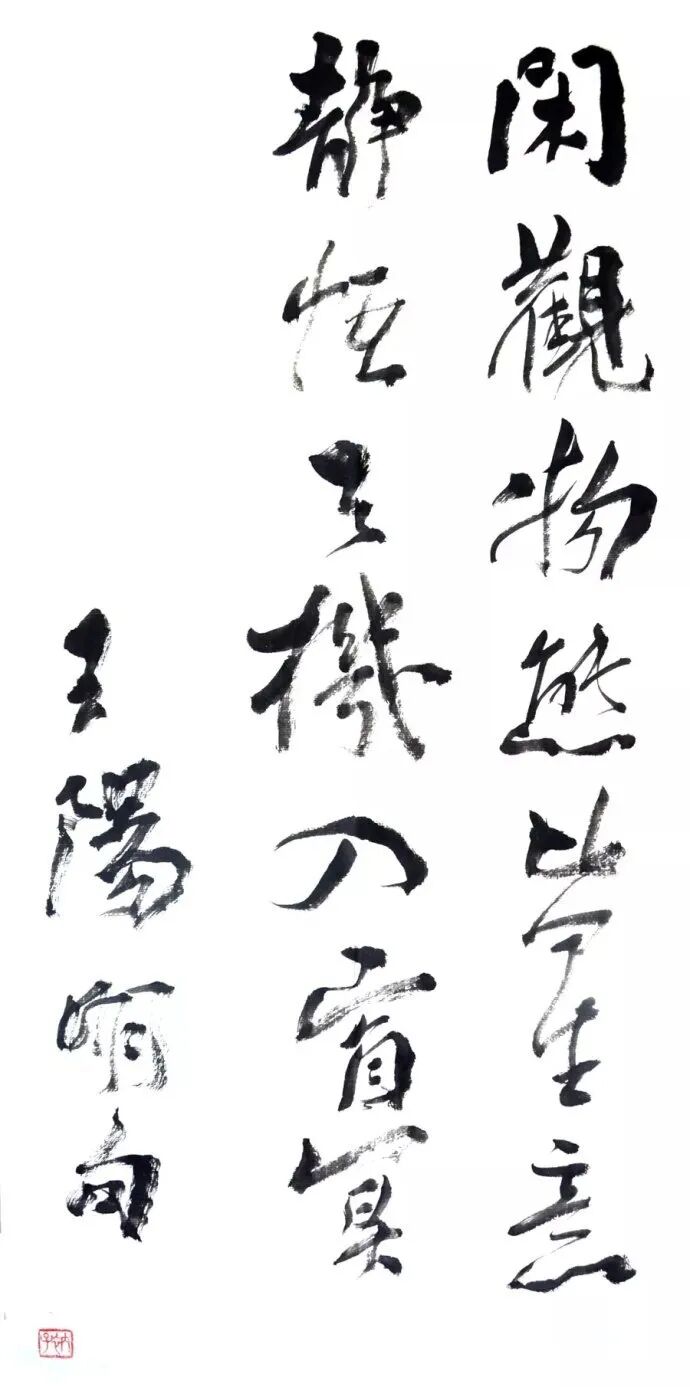 閑觀物態皆生意
靜悟天機入窅冥
王陽明句